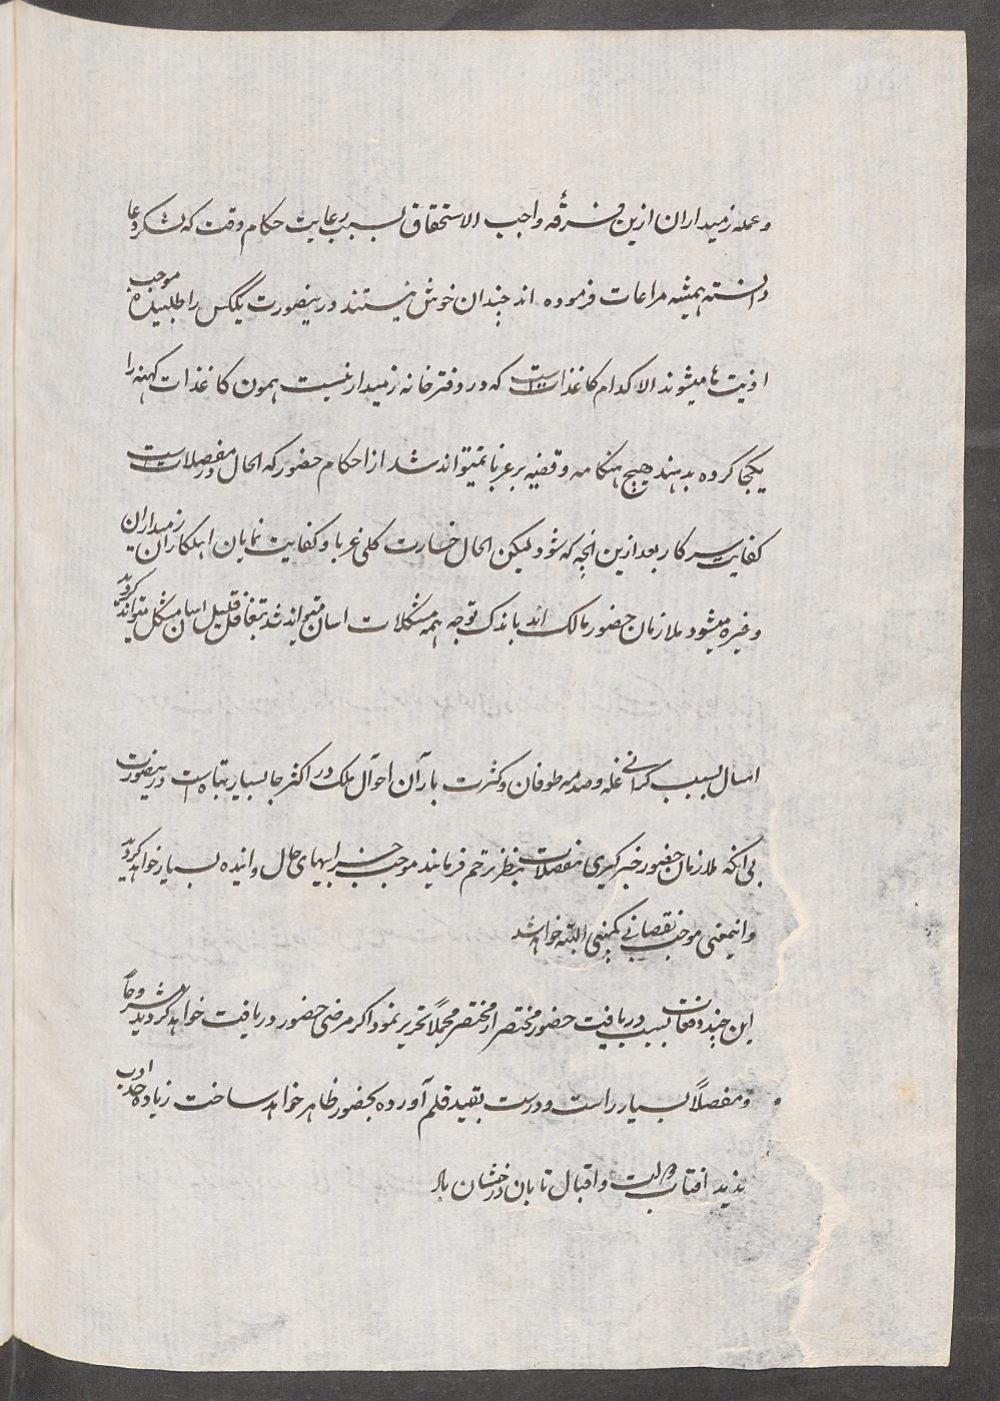 و عمله زمیداران ازین فرقه واجب الاستحقاق بسبب رعایت حکام وقت که لشکر دعا
دانسته همیشه مراعات فرموده اند چندان خوش نیستند درینصورت یککس را طلبیده موجب
اذیت ها میشوند الا کدام کاغذات است که در دفترخانه زمیدار نیست همون کاغذات کهنه را
یکجا کرده بدهند هیچ هنکامه و قضیه بر غربا نمیتواند شد از احکام حضور که الحال در مفصلات است
کفایت سرکار بعد ازین انچه که شود لیکن الحال خسارت کلی غربا و کفایت نمایان اهلکاران زمیداران
وغیره میشود ملازمان حضور مالک اند باندک توجه همه مشکلات اسان میتواند شد بتغافل قلیل اسان مشکل میتواند کردید
امسال بسبب کرانی غله و صدمه طوفان و کثرت باران احوال ملک در اکثر جا بسیار تباه است درینصورت
بی انکه ملازمان حضور خبرکیری مفصلات بنظر ترحم فرمایند موجب خرابیهای حال و اینده بسیار خواهد کردید
و اینمعنی موجب نقصانی کمپنی البته خواهد شد
این چند دفعات بسبب دریافت حضور مختصر از مختصر مجملاً تحریر نمود اکر مرضی حضور دریافت خواهد کردید مشروحاً
و مفصلاً بسیار راست و درست بقید قلم آورده بحضور ظاهر خواهد ساخت زیاده حد ادب
ندید افتاب دولت و اقبال تابان و درخشان باد